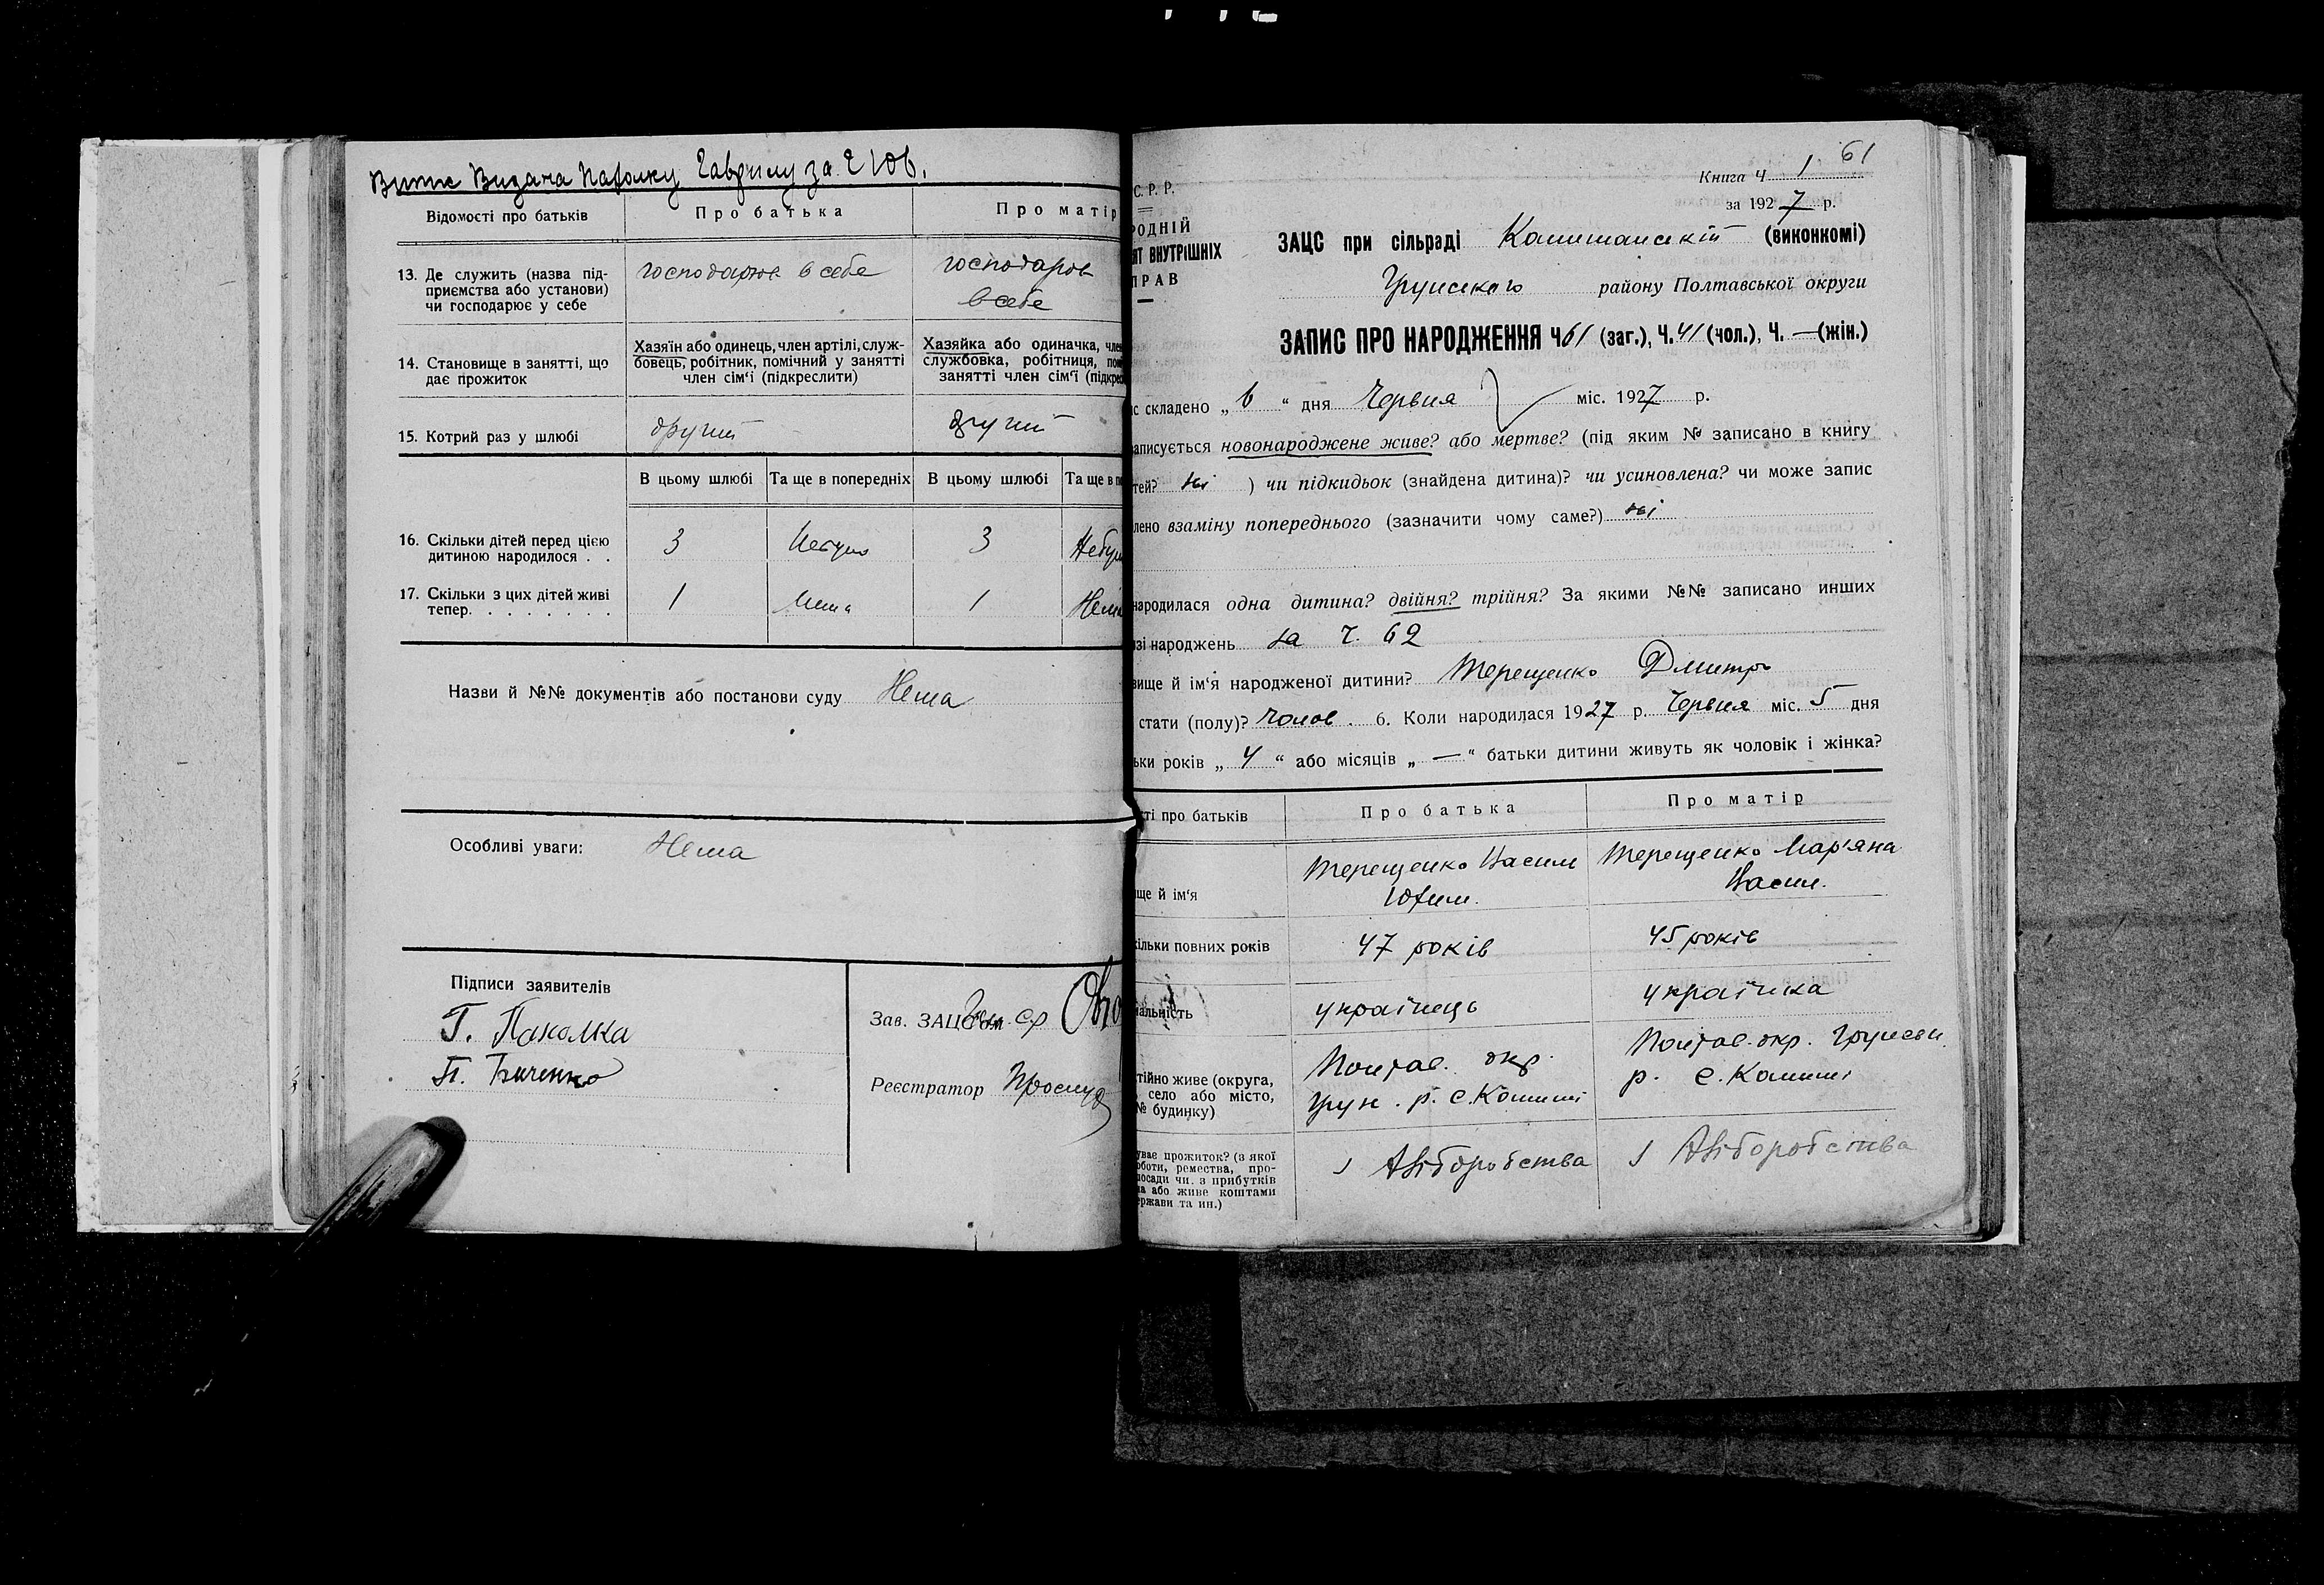 Витяг Видано Паколку Гаврилу за Ч 106.
Відомості про батьків
Про батька
Про матір
13. Де служить (назва під-
приємства або установи)
чи господарює у себе
господарює в себе
господарює
в себе
14. Становище в занятті, що
дає прожиток
Хазяїн або одинець, член артілі, служ-
бовець, робітник, помічний у занятті
член сім'ї (підкреслити)
Хазяйка або одиначка, член
службовка, робітниця, пом
занятті член сім'ї (підкрес
15. Котрий раз у шлюбі
другий
другий
В цьому шлюбі
Та ще в попередніх
В цьому шлюбі
Та ще в по
16. Скільки дітей перед цією
дитиною народилося . .
3
Небуло
3
Небул
17. Скільки з цих дітей живі
тепер. . . . . . . .
1
Нема
1
Нема
Назви й №№ документів або постанови суду Нема
Особливі уваги: Нема
Підписи заявителів
Г. Паколка
П. Биченко
Зав. ЗАЦСом
Реєстратор
61
Книга Ч 1
за 1927 р.
С. Р. Р.
РОДНІЙ
ЯТ ВНУТРІШНІХ
ПРАВ
ЗАЦС при сільраді (виконкомі)
Грунського району Полтавської округи
ЗАПИС ПРО НАРОДЖЕННЯ Ч 61 (заг.), Ч. 41 (чол.), Ч. — (жін.)
с складено „ 6 “ дня Червня міс. 1927 р.
аписується новонароджене живе? або мертве? (під яким № записано в книгу
тей? ні ) чи підкидьок (знайдена дитина)? чи усиновлена? чи може запис
лено взаміну попереднього (зазначити чому саме?) ні
народилася одна дитина? двійня? трійня? За якими №№ записано инших
зі народжень за ч. 62
вище й ім'я народженої дитини? Терещенко Дмитро
стати (полу)? Чолов. 6. Коли народилася 1927 р. Червня міс. 5 дня
ьки років „ 4 “ або місяців „ — “ батьки дитини живуть як чоловік і жінка?
ті про батьків
Про батька
Про матір
ще й ім'я
Терещенко Васил
Юхим.
Терещенко Мар'яна
Васил.
ільки повних років
47 років
45 років
альність
українець
українка
тійно живе (округа,
село або місто,
№ будинку)
Полтав. окр.
Грун. р. с. Колиші
Полтав. окр. Грунськ.
р. с. Колиші
уває прожиток? (з якої
оботи, ремества, про-
посади чи. з прибутків
на або живе коштами
ержави та ин.)
з Хліборобства
з Хліборобства